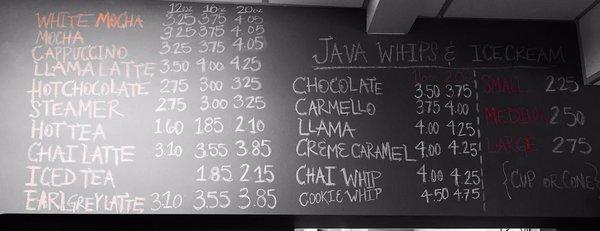 12oz 16oz 20oz
WHITE MOCHA 3.25 3.75 4.05
MOCHA 3.25 3.75 4.05
CAPPUCCINO 3.25 3.75 4.05
LLAMA LATTE 3.50 4.00 4.25
HOT CHOCOLATE 2.75 3.00 3.25
STEAMER 2.75 3.00 3.25
HOT TEA 1.60 1.85 2.10
CHAI LATTE 3.10 3.55 3.85
ICED TEA 1.85 2.15
EARL GREY LATTE 3.10 3.55 3.85
JAVA WHIPS & ICE CREAM
16oz 20oz
CHOCOLATE 3.50 3.75
CARMELLO 3.75 4.00
LLAMA 4.00 4.25
CREME CARAMEL 4.00 4.25
CHAI WHIP 4.00 4.25
COOKIE WHIP 4.50 4.75
SMALL 2.25
MEDIUM 2.50
LARGE 2.75
{CUP OR CONE}